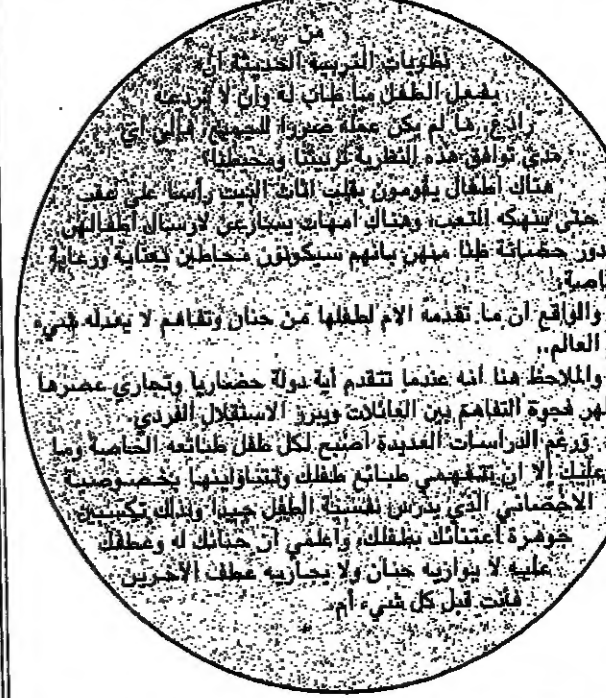 من
نظريات التربية الحديثة أن
يفعل الطفل ما طاب له وأن لا يردعه
رادع، ما لم يكن عمله ضررا للجميع، فإلى أي
مدى توافق هذه النظرية تربيتنا ومحيطنا؟
هناك أطفال يقومون بقلب اثاث البيت رأسا على عقب
حتى ينهكه التعب، وهناك امهات يسارعن لارسال أطفالهن
دور حضانة ظنا منهن بانهم سيكونون محاطين بعناية ورعاية
اصة،
والواقع أن ما تقدمه الام لطفلها من حنان وتفاهم لا يعدله شيء
العالم..
والملاحظ هنا أنه عندما تتقدم أية دولة حضاريا وتجاري عصرها
هر فجوة التفاهم بين العائلات ويبرز الاستقلال الفردي
ورغم الدراسات العديدة أصبح لكل طفل طبائعه الخاصة وما
عليك إلا ان تتفهمي طبائع طفلك وتتناولينها بخصوصية
الاخصائي الذي يدرس نفسية الطفل جيدا وبذلك تكسبين
جوهرة اعتنائك بطفلك، وأعلمي أن حنانك له وعطفك
عليه لا يوازيه حنان ولا يجاريه عطف الآخرين
فأنت قبل كل شيء أم.